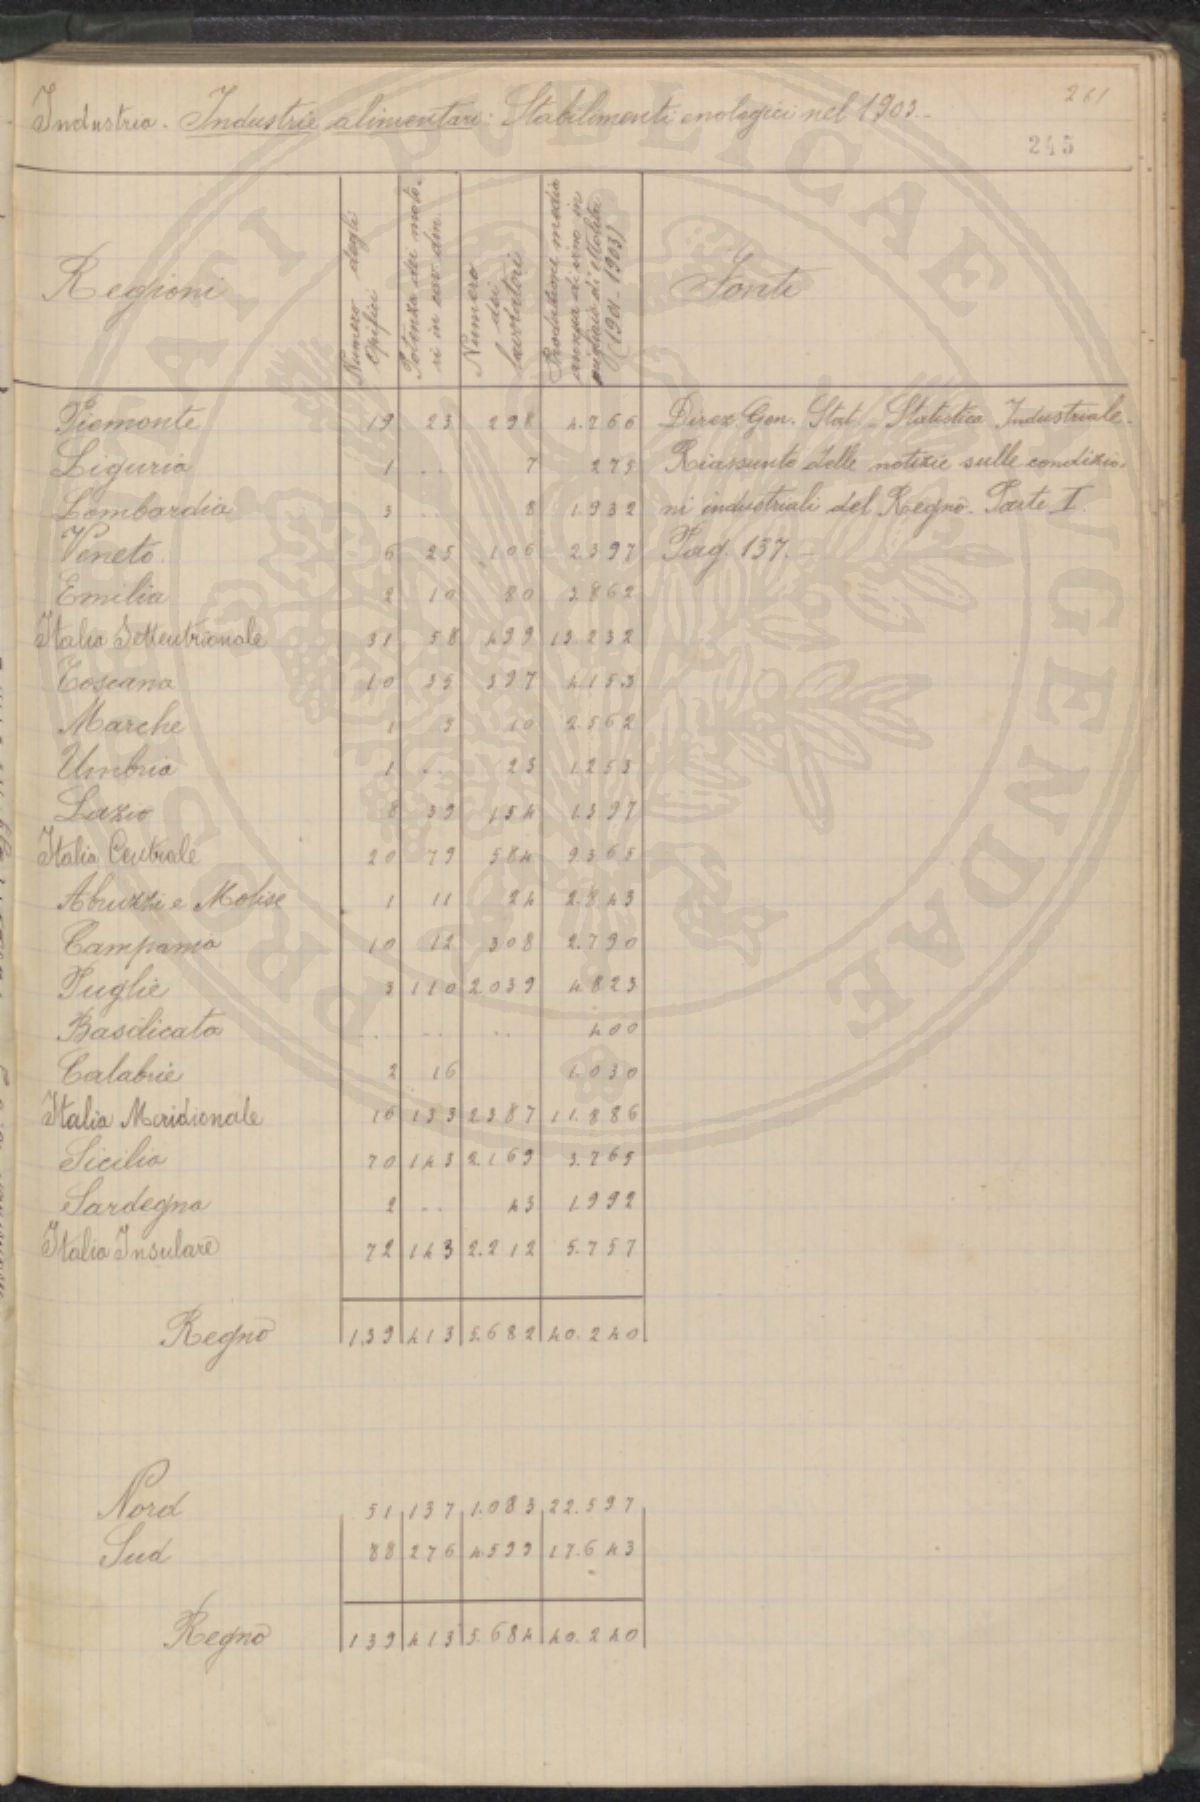 261
Industria. Industrie alimentari: Stabilimenti enologici nel 1903.
245
Regioni | Numero degli Opifici | Potenza dei motori in cav. din. | Numero dei lavoratori | Produzione media annua di vino in migliaia di ettolitri (1901-1903) | Fonti
Piemonte 19 23 298 4.766 Direz. Gen. Stat. - Statistica Industriale.
Liguria 1 .. 7 275 Riassunto delle notizie sulle condizio-
Lombardia 3 .. 8 1.932 ni industriali del Regno. Parte I.
Veneto 6 25 106 2.397 Pag. 137.
Emilia 2 10 80 3.862
Italia Settentrionale 31 58 499 13.232
Toscana 10 35 397 4.153
Marche 1 3 10 2.562
Umbria 1 .. 23 1.253
Lazio 8 39 154 1.397
Italia Centrale 20 79 584 9.365
Abruzzi e Molise 1 11 24 2.843
Campania 10 12 308 2.790
Puglie 3 110 2.039 4.823
Basilicata .. .. .. 400
Calabrie 2 16 1.030
Italia Meridionale 16 133 2387 11.886
Sicilia 70 143 2.169 3.765
Sardegna 2 .. 43 1.992
Italia Insulare 72 143 2.212 5.757
Regno 139 413 5.682 40.240
Nord 51 137 1.083 22.597
Sud 88 276 4.599 17.643
Regno 139 413 5.684 40.240
PRO VERITATI PUBLICAE VIGENDAE